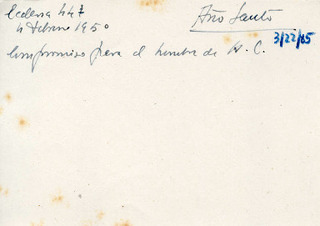 Cedesa 447
4 Febrero 1950
Año Santo
Compromiso para el hombre de N. C.
3/22/65